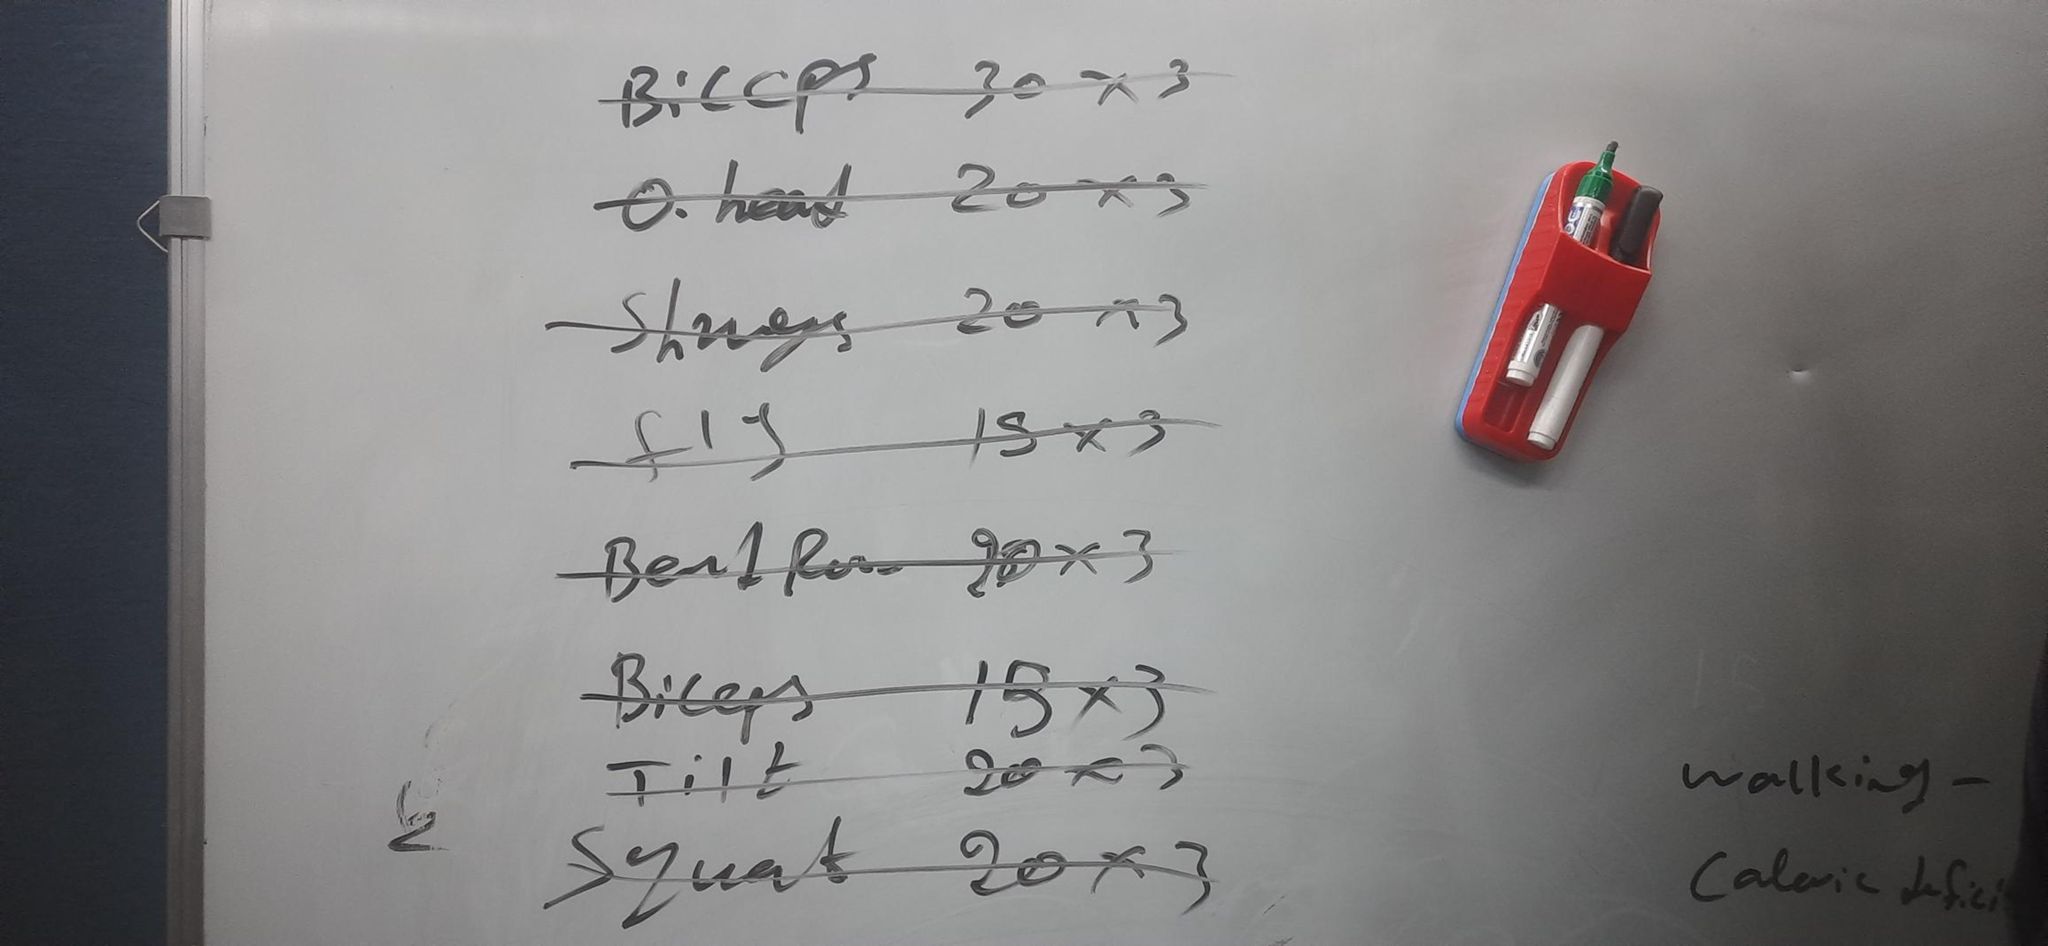 Biceps 30 x 3
O. head 20 x 3
Shrugs 20 x 3
fly 15 x 3
Bent Row 20 x 3
Biceps 15 x 3
Tilt 20 x 3
Squat 20 x 3
walking -
Caloric defici